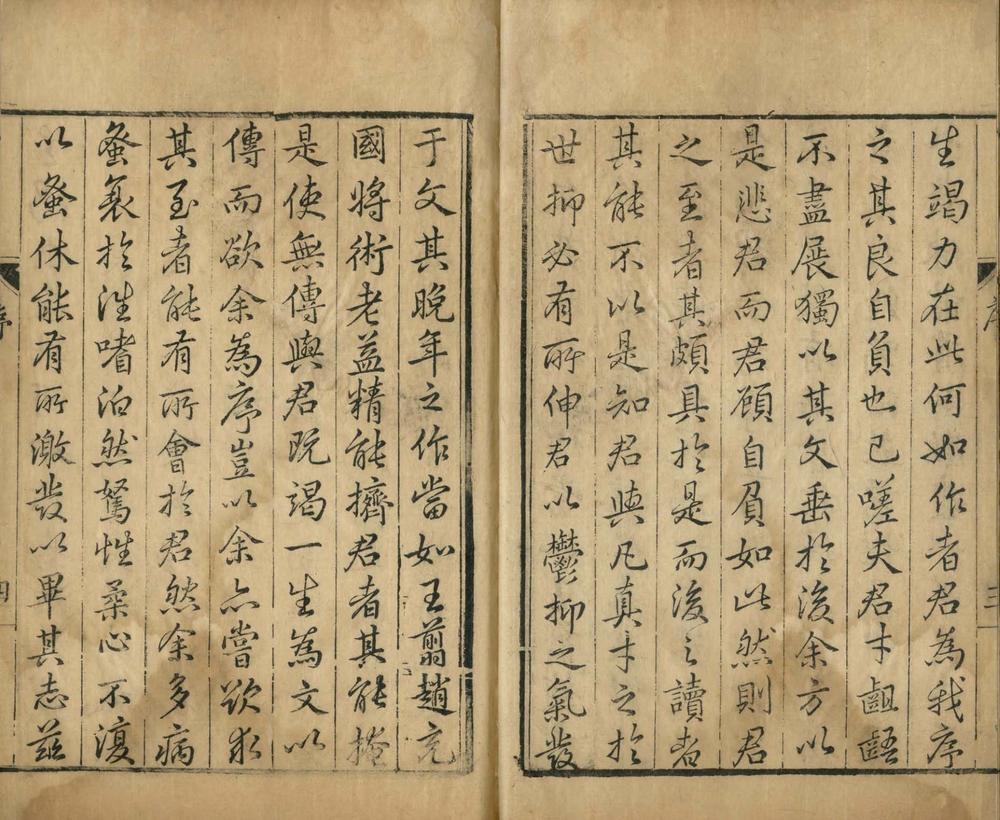 生竭力在此何如作者君為我序
之其良自負也已嗟夫君才齟齬
不盡展獨以其文垂於後余方以
是悲君而君顧自負如此然則君
之至者其頗具於是而後之讀者
其能不以是知君與凡真才之於
世抑必有所伸君以鬱抑之氣發
于文其晚年之作當如王翦趙充
國將術老益精能擠君者其能掩
是使無傳與君既竭一生為文以
傳而欲余為序豈以余亦嘗欲求
其至者能有所會於君然余多病
蚤衰於洼嗜泊然駑性柔心不復
以蚤休能有所激發以畢其志茲
序
三
序
四